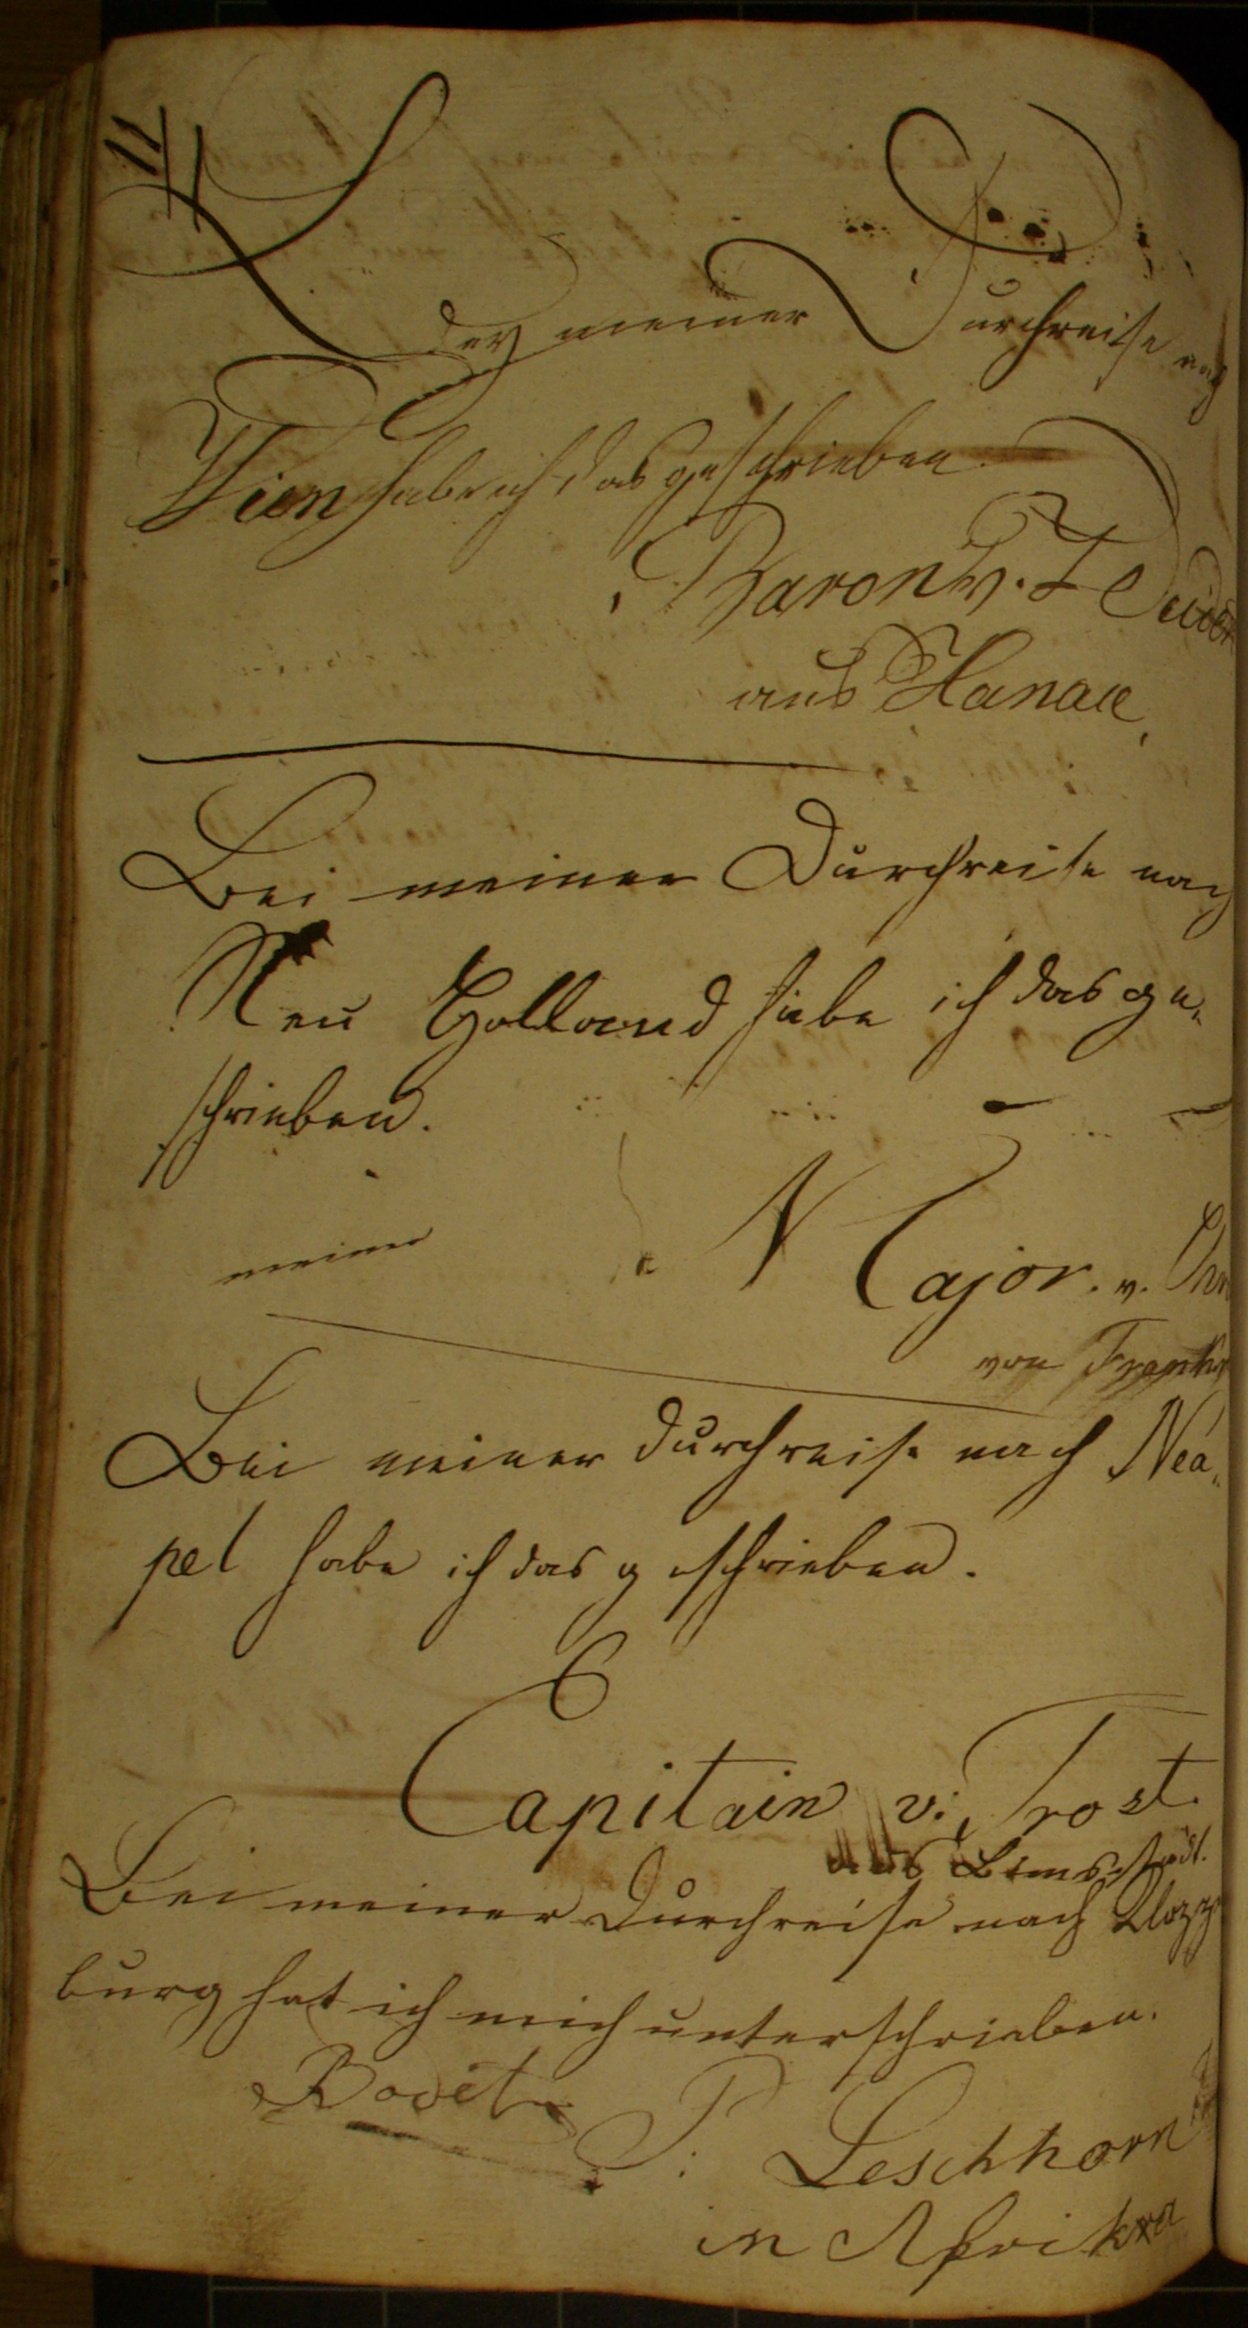 11
Bey meiner Durchreise nach
Wien habe ich das geschrieben
Baron v.
aus Hanau
Bei meiner Durchreise nach
Neu Holland habe ich das ge-
schrieben.
meiner
Major. v.
von
Bei meiner durchreise nach Nea-
pel habe ich das geschrieben.
Capitain v: Trost
aus
Bei meiner Durchreise nach
burg hat ich mich unterschrieben.
P: Leschhorn
in Afrika